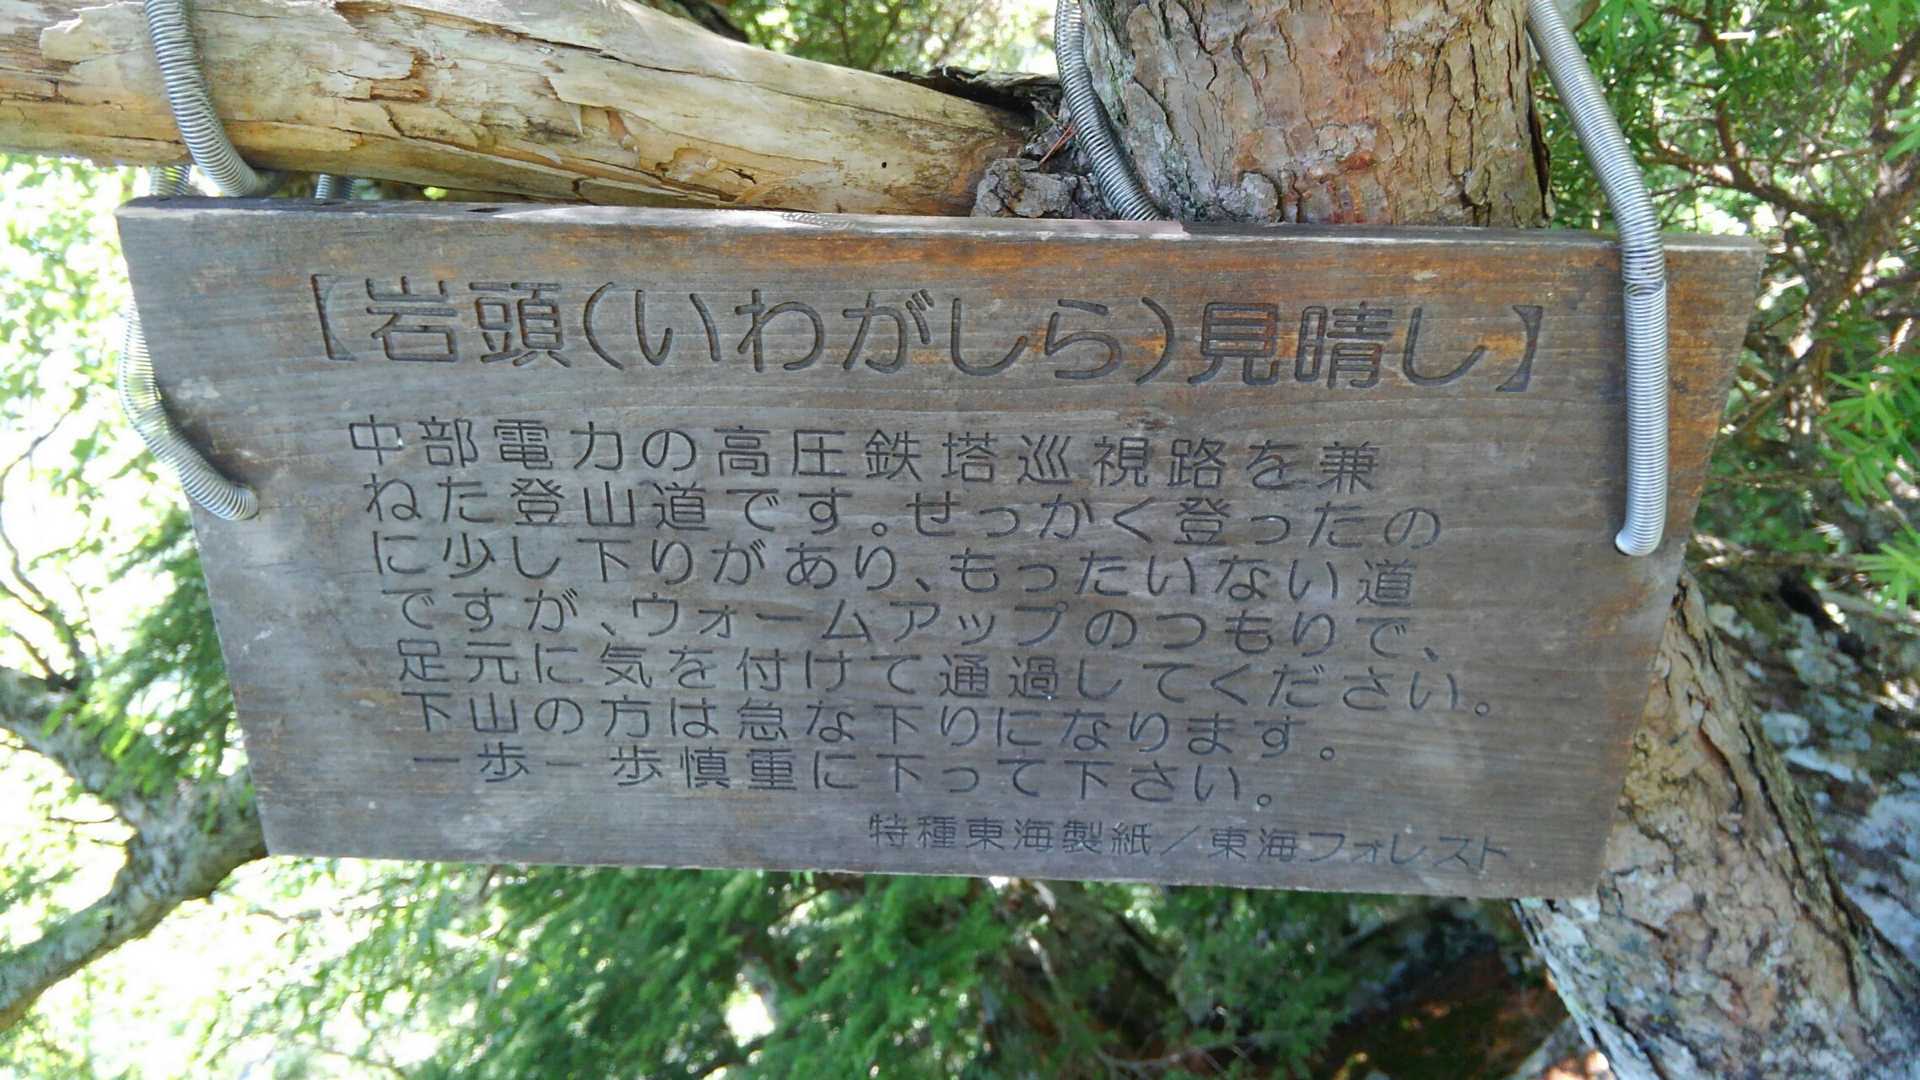 【岩頭(いわがしら)見晴し】
中部電力の高圧鉄塔巡視路を兼
ねた登山道です。せっかく登ったの
に少し下りがあり、もったいない道
ですが、ウォームアップのつもりで、
足元に気を付けて通過してください。
下山の方は急な下りになります。
一歩一歩慎重に下って下さい。
特種東海製紙/東海フォレスト